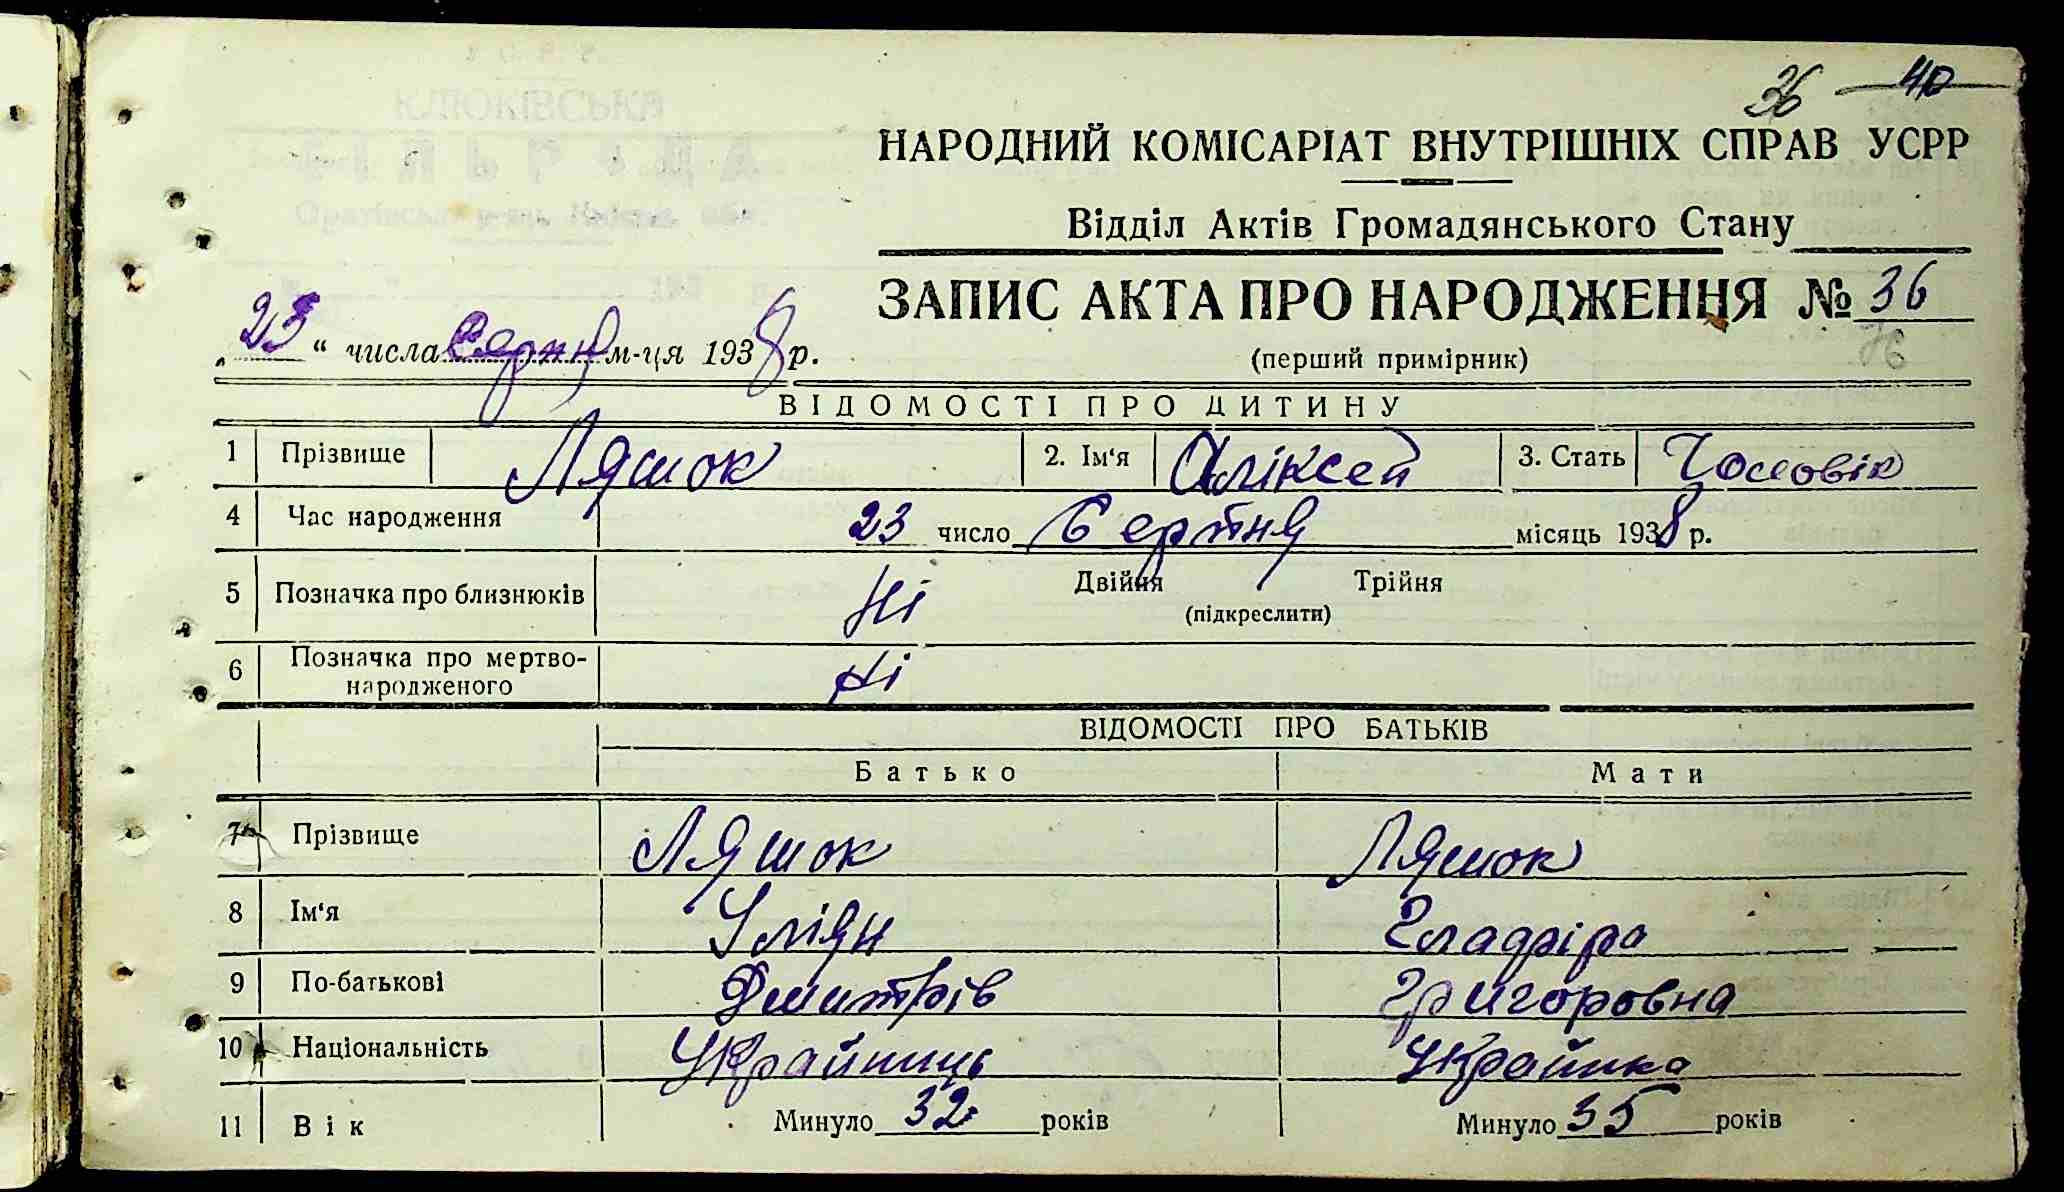 36 40
НАРОДНИЙ КОМІСАРІАТ ВНУТРІШНІХ СПРАВ УСРР
Відділ Актів Громадянського Стану
ЗАПИС АКТА ПРО НАРОДЖЕННЯ № 36
„23“ числа Серпня м-ця 1938 р.
(перший примірник)
36
ВІДОМОСТІ ПРО ДИТИНУ
1 Прізвище Ляшок 2. Ім‘я Аліксей 3. Стать Чоловік
4 Час народження 23 число Серпня місяць 1938 р.
5 Позначка про близнюків Ні Двійня Трійня
(підкреслити)
6 Позначка про мертво-
народженого Ні
ВІДОМОСТІ ПРО БАТЬКІВ
Батько Мати
7 Прізвище Ляшок Ляшок
8 Ім‘я Уліян Гладфіра
9 По-батькові Дмитрів Григоровна
10 Національність Українець Українка
11 Вік Минуло 32 років Минуло 35 років